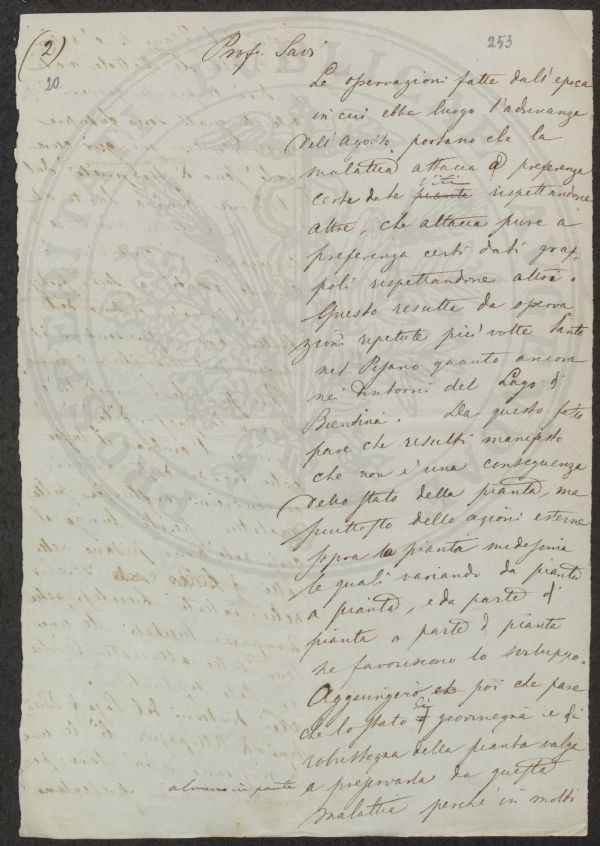 (2)
20.
Prof. Savi
253
Le osservazioni fatte dall'epoca
in cui ebbe luogo l'adunanza
dell'Agosto, portano che la
malattia attacca a preferenza
certe date piante viti rispettandone
altre, che attacca pure a
preferenza certi dati grap-
poli rispettandone altri.
Questo resulta da osserva
zioni ripetute più volte tanto
nel Pisano quanto ancora
nei dintorni del Lago di
Bientina. Da questo fatto
pare che resulti manifesto
che non è una conseguenza
dello stato della pianta, ma
piuttosto delle azioni esterne
sopra la pianta medesima
le quali variando da pianta
a pianta, e da parte di
pianta a parte di pianta
ne favoriscono lo sviluppo.
Aggiungerò poi che pare
che lo stato di giovinezza e di
robustezza della pianta valga
almeno in parte
a preservarla da questa
malattia perché in molti
PUBLICAE
PROSPERITATI